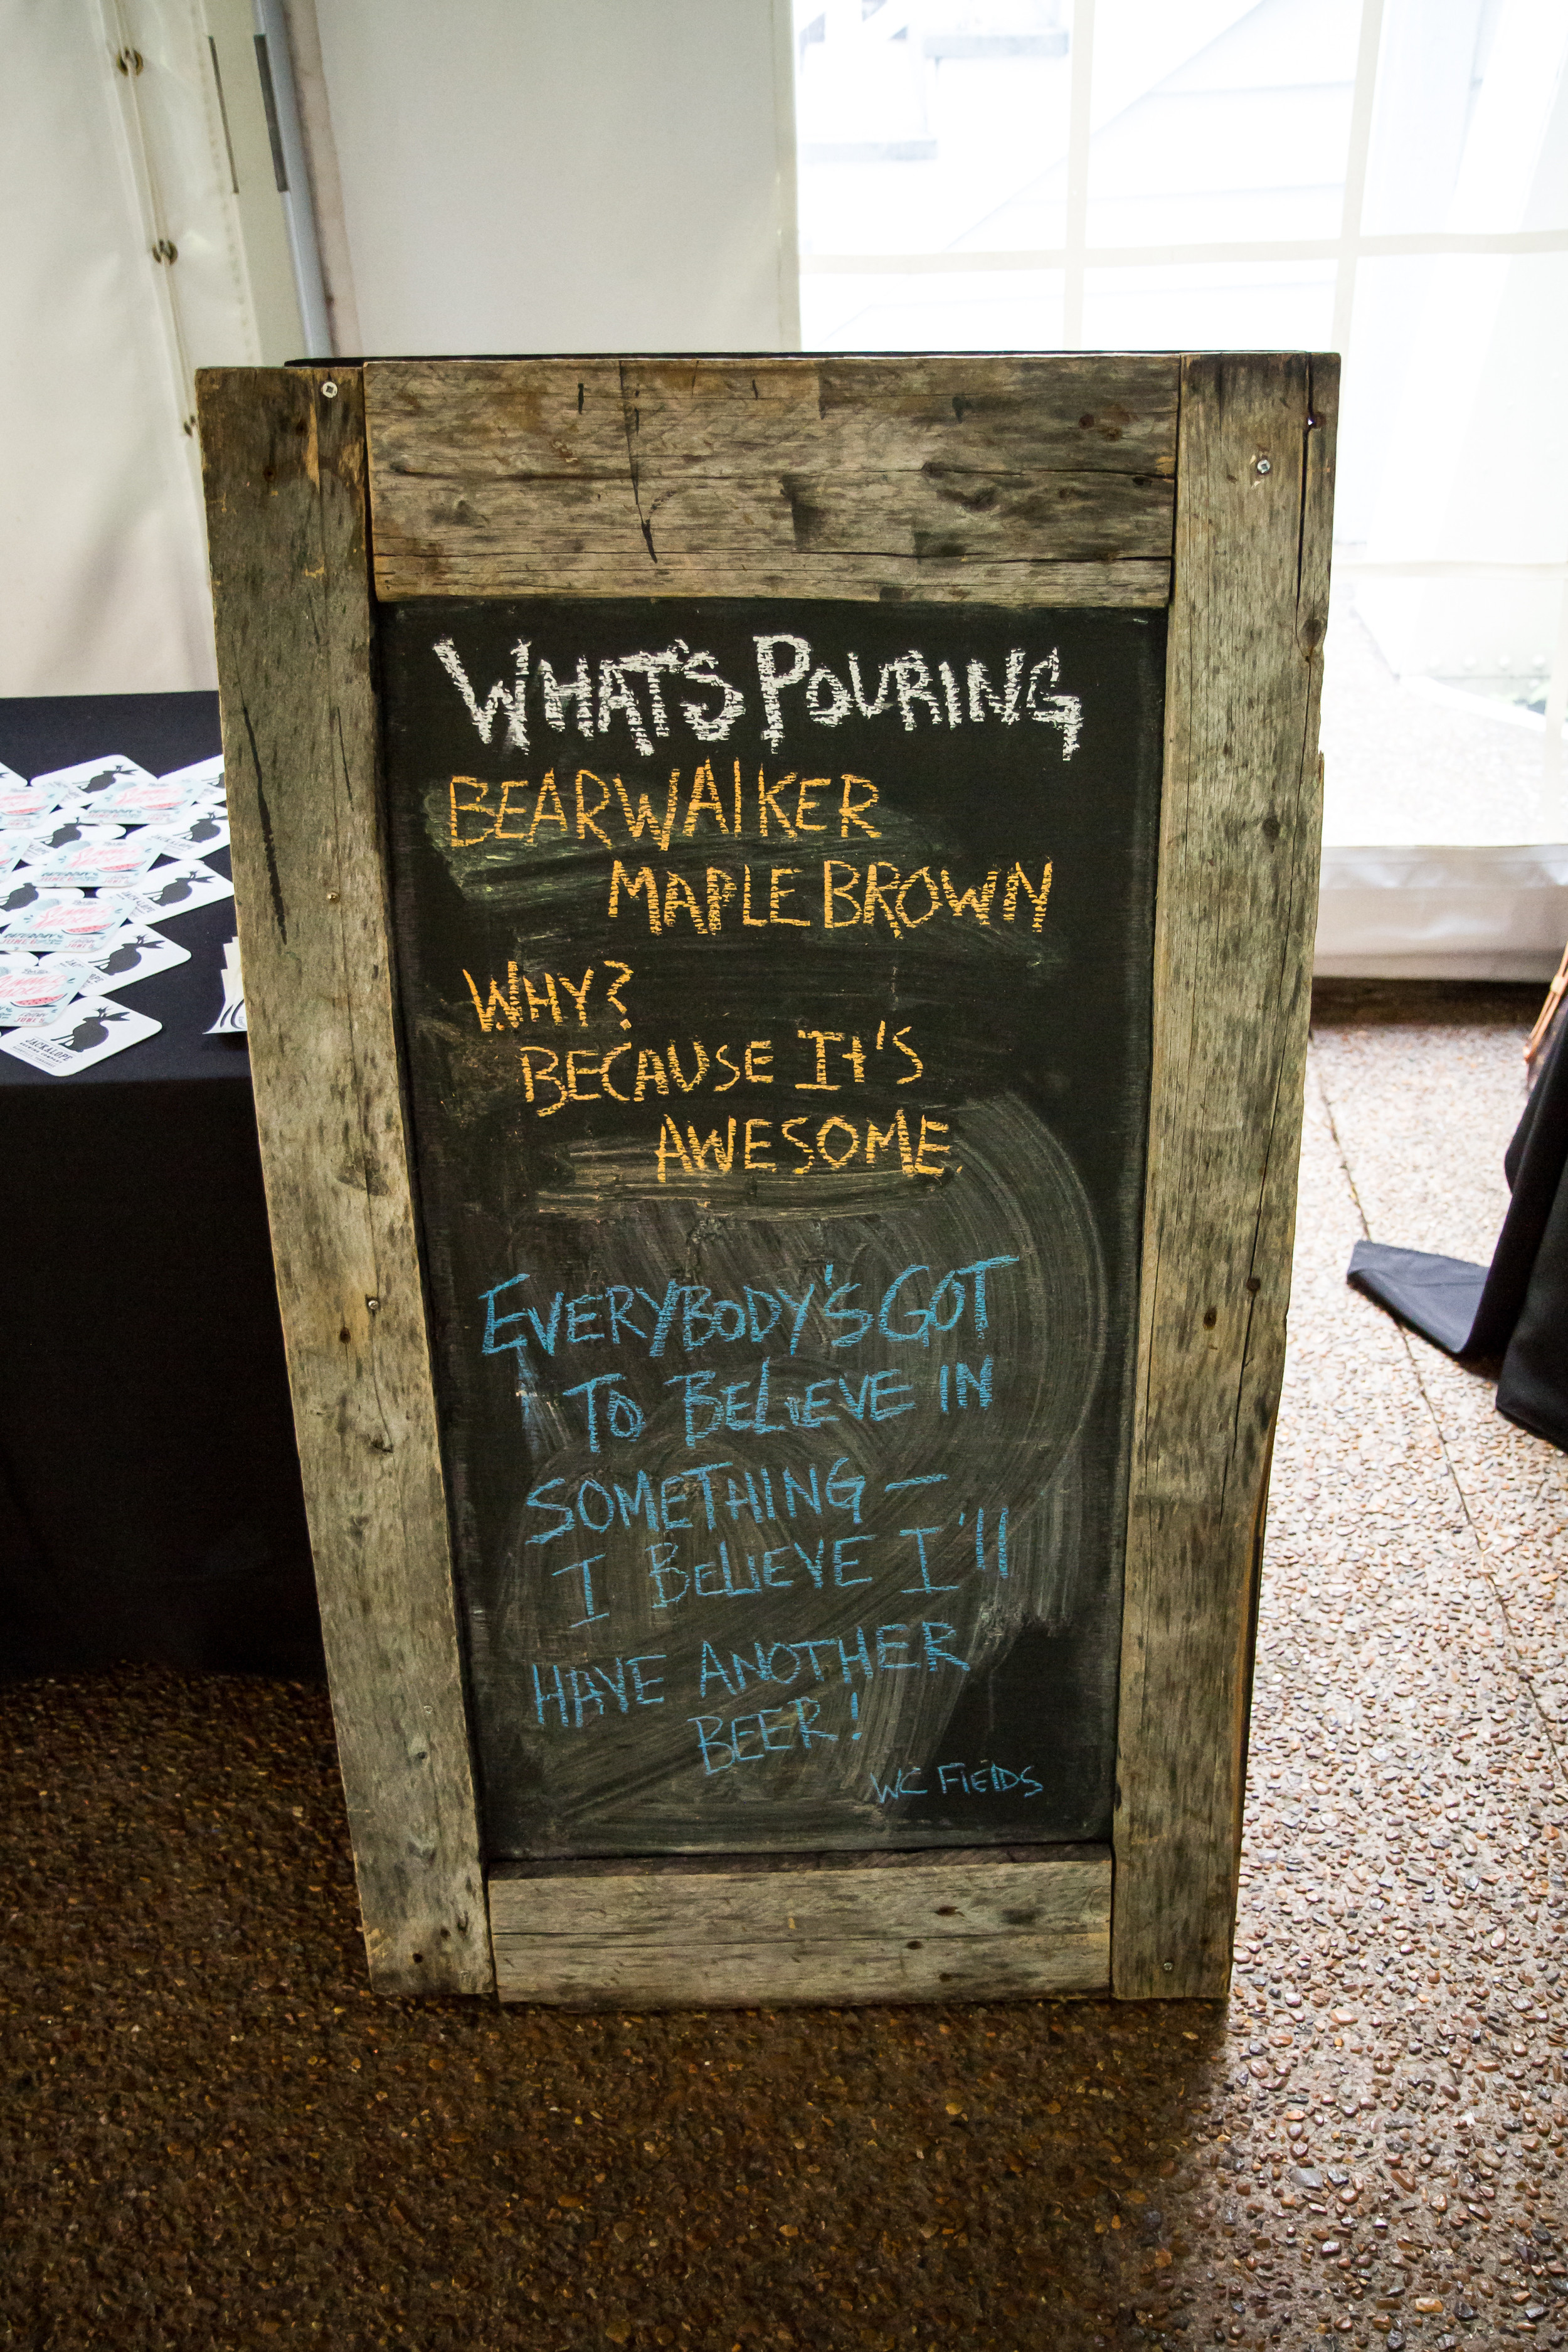 WHAT'S POURING
BEARWALKER
MAPLE BROWN
WHY?
BECAUSE IT'S
AWESOME.
EVERYBODY'S GOT
TO BELIEVE IN
SOMETHING —
I BELIEVE I'll
HAVE ANOTHER
BEER!
WC FIELDS
JACKALOPE
BREWING COMPANY